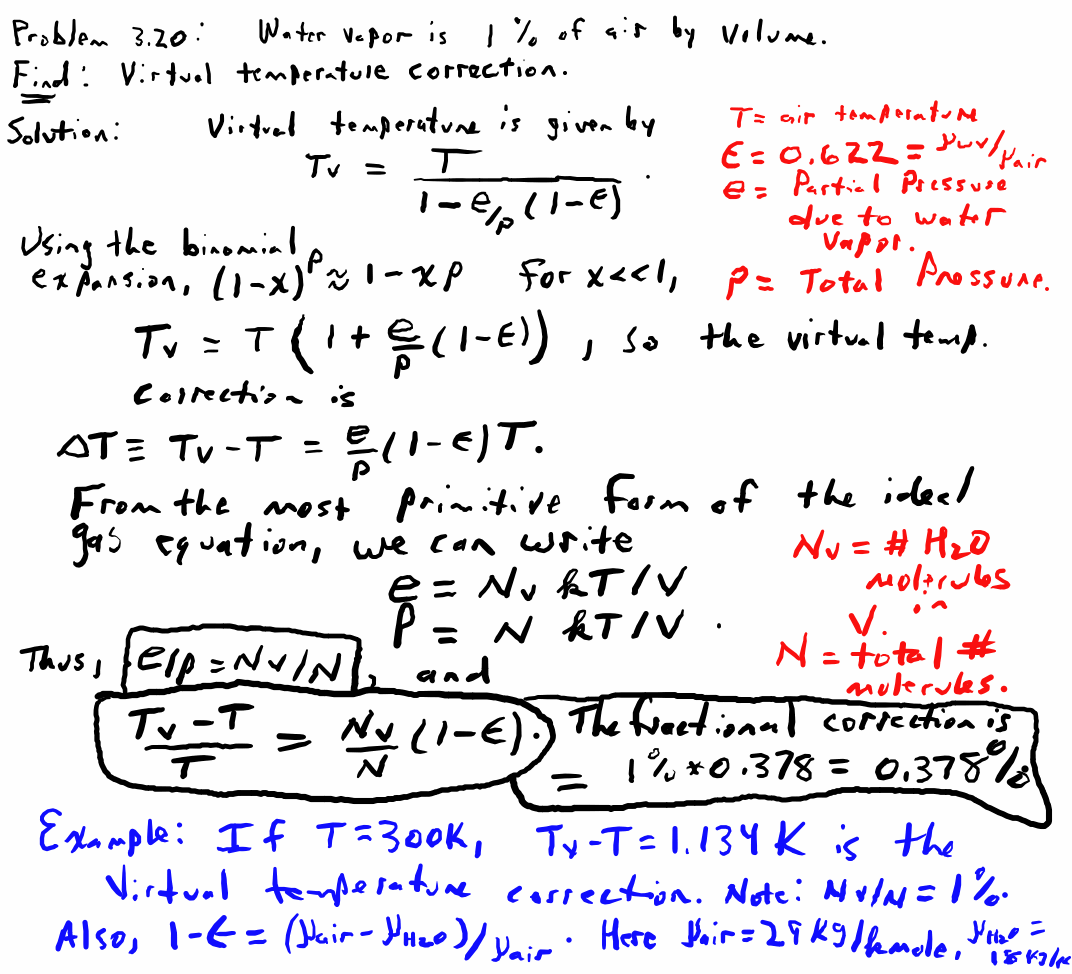 Problem 3.20: Water vapor is 1% of air by volume.
Find: Virtual temperature correction.
Solution: Virtual temperature is given by
Tv = T / (1 - e/p (1-ϵ)) .
T = air temperature
ϵ = 0.622 = μwv/μair
e = Partial Pressure
due to water
vapor.
p = Total Pressure.
Using the binomial
expansion, (1-x)^p ≈ 1-xp for x<<1,
Tv = T (1 + e/p (1-ϵ)) , so the virtual temp.
correction is
ΔT ≡ Tv - T = e/p (1-ϵ)T.
From the most primitive form of the ideal
gas equation, we can write
e = Nv kT/V
P = N kT/V .
Nv = # H2O
molecules
in
V.
N = total #
molecules.
Thus, e/p = Nv/N , and
(Tv - T)/T = Nv/N (1-ϵ).
The fractional correction is
= 1% * 0.378 = 0.378%
Example: If T = 300K, Tv-T = 1.134 K is the
Virtual temperature correction. Note: Nv/N = 1%.
Also, 1-ϵ = (μair - μH2O)/μair . Here μair = 29 kg/kmole, μH2O =
18 kg/